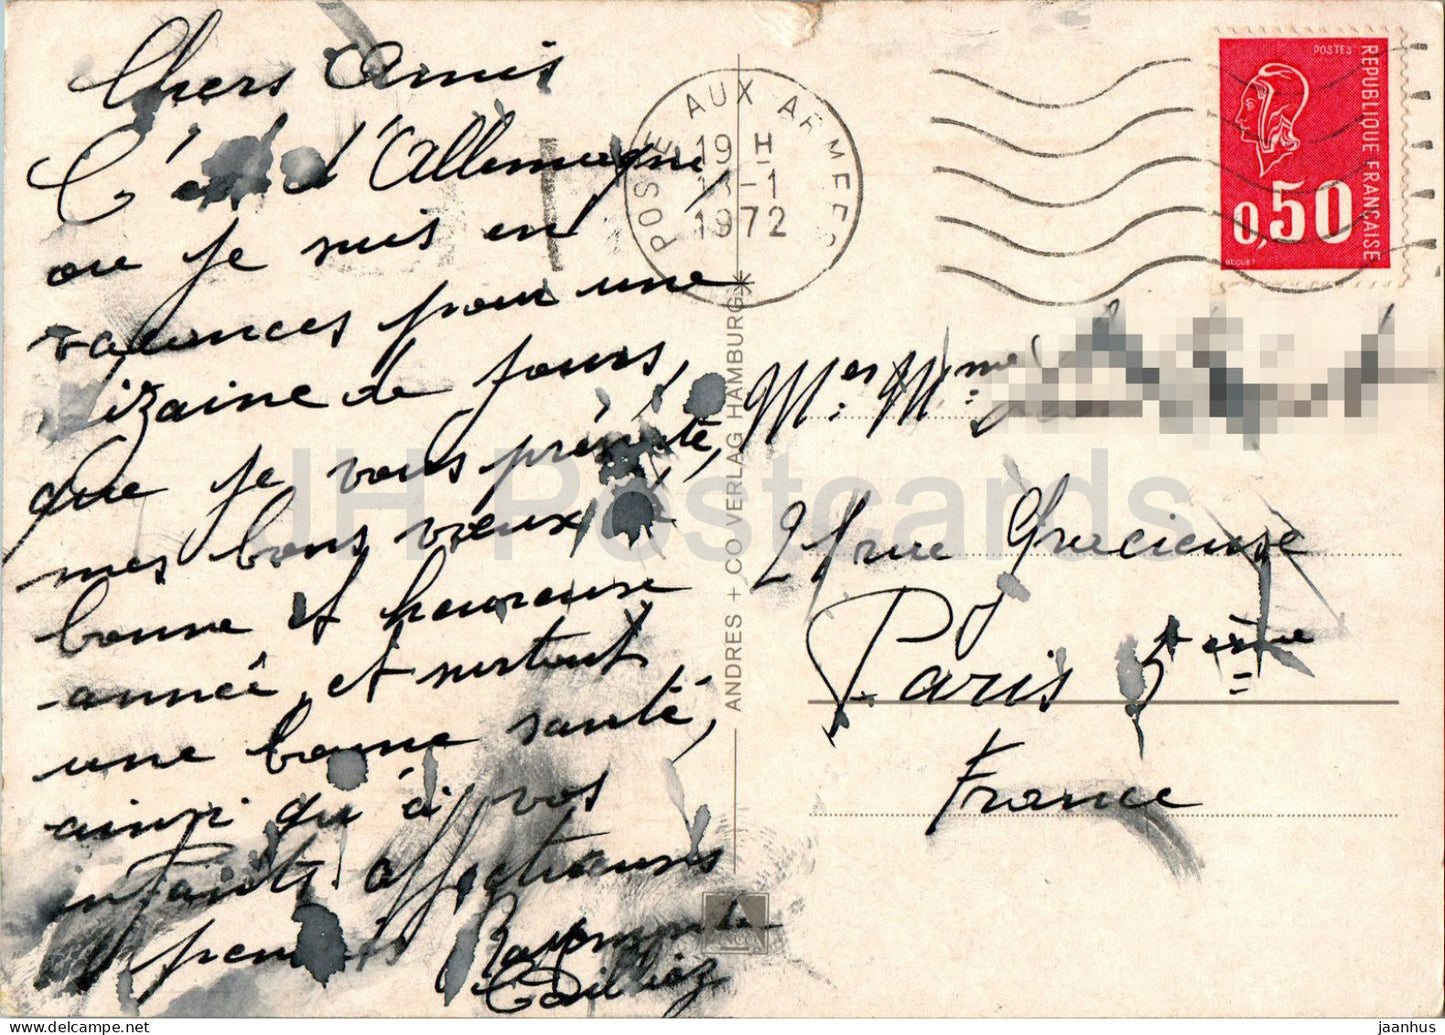 Chers Amis
C'est d'Allemagne,
ou je suis en
vacances pour une
dizaine de jours,
que je vous présente,
mes bons vœux,
bonne et heureuse
année, et surtout
une bonne santé,
ainsi qu'à vos
enfants affectueuses
pensées Raymonde
POSTE AUX ARMEES
19 H
13-1
1972
POSTES
REPUBLIQUE FRANÇAISE
0,50
BEQUET
ANDRES + CO VERLAG HAMBURG
Mr Mme
21 rue Gracieuse
Paris 5ème
France
IH Postcards
jaanhus